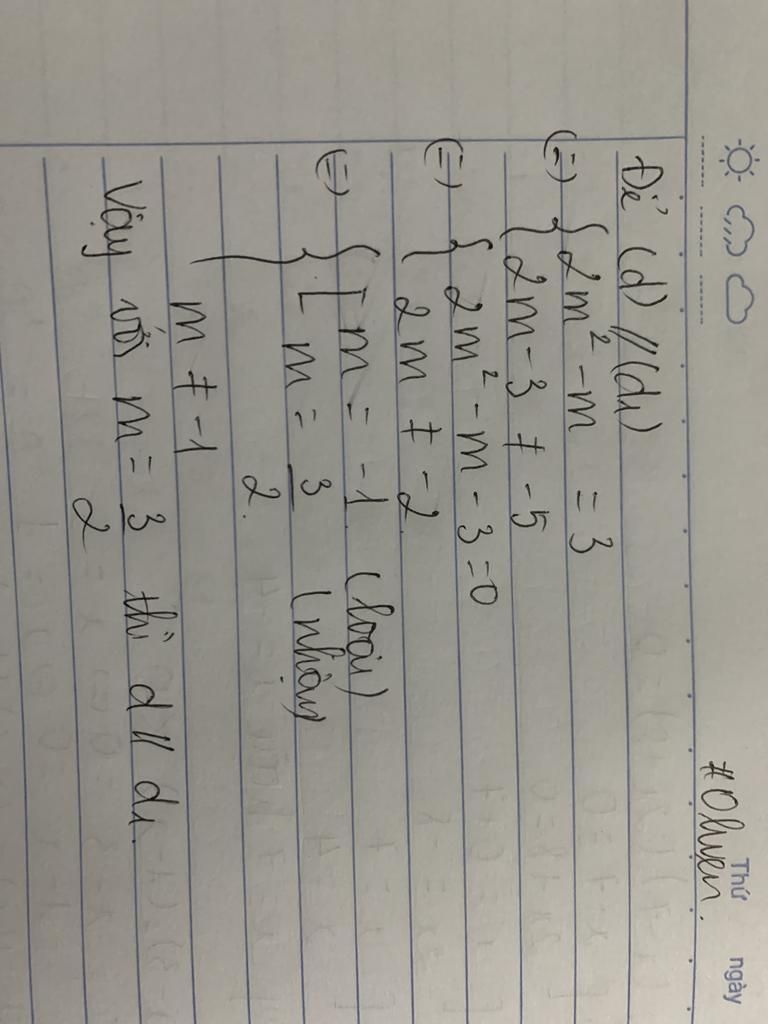 Thứ
ngày
#Ohuyen.
Để (d) // (d₁)
(=) { 2m² - m = 3
2m - 3 ≠ -5
(=) { 2m² - m - 3 = 0
2m ≠ -2
(=) { [ m = -1 (loại)
m = 3/2. (nhận)
m ≠ -1
Vậy với m = 3/2 thì d // d₁.